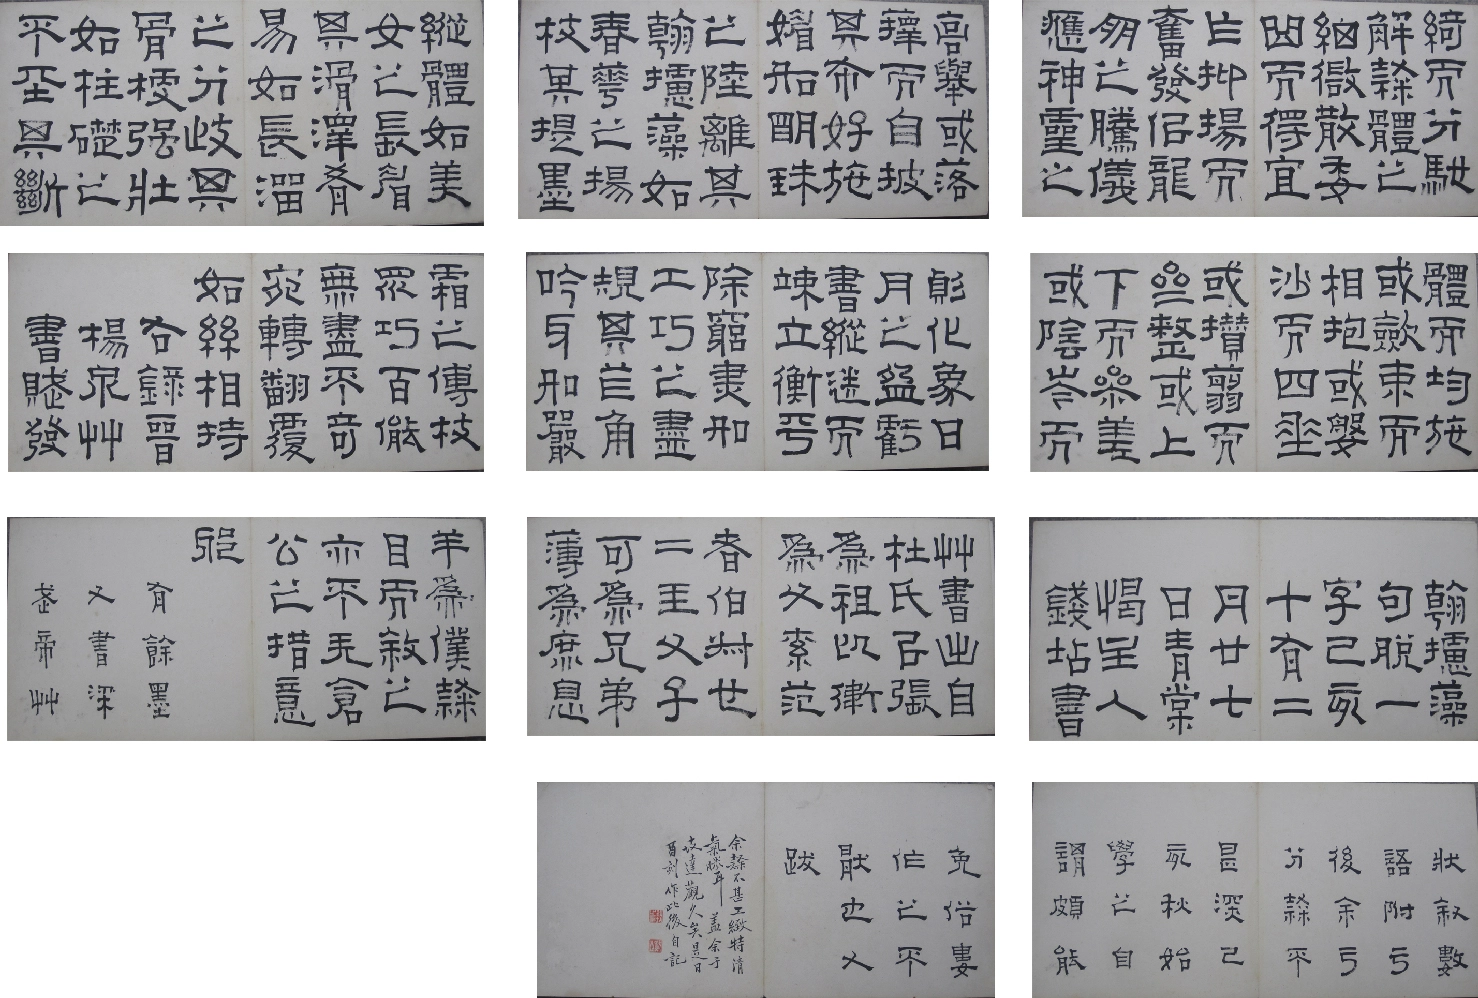 綺而分馳
解隸體之
細微散委
曲而得宜
乍抑揚而
奮發侣龍
朋之騰儀
應神靈之
高舉或落
籜而自披
其布好施
媚如明珠
之陸離其
翰攄藻如
春華之揚
枝其提墨
縱體如美
女之長眉
其滑澤肴
易如長溜
之分歧其
骨梗强壯
如柱礎之
不坙其斷
體而均施
或斂束而
相抱或婆
沙而四垂
或攢翦而
整或上
下而參差
或陰岑而
化象日
月之盈虧
書縱迷而
竦立衡平
除窮盡如
工巧之盡
規其芒角
吟牙如嚴
霜之傅枝
眾巧百態
無盡不奇
宛轉翻覆
如絲相持
右錄晉
楊泉艸
書賦發
翰攄藻
句脫一
字己亥
十有二
月廿七
日青棠
至人
錢坫書
艸書出自
杜氏呂張
為祖以衛
為父索范
者伯叔也
二王父子
可為兄弟
薄為庶息
羊為僕隸
目而敘之
亦不无倉
公之措意
耶
有餘墨
又書梁
武帝艸
狀敘數
語附于
後余于
分隸平
深己
亥秋始
學之自
謂頗能
免俗婁
作之不
厭也又
跋
余雖不甚工緻特清
氣勝耳蓋余于
達觀久矣是日
酉刻作此後自記